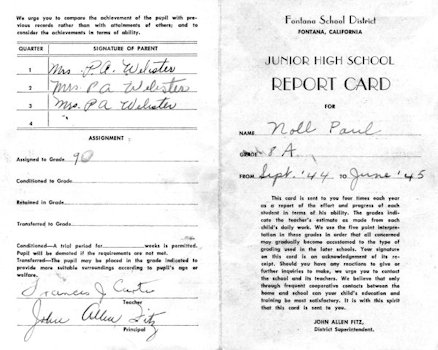 We urge you to compare the achievement of the pupil with pre-
vious records rather than with attainments of others; and to
consider the achievements in terms of ability.
QUARTER SIGNATURE OF PARENT
1 Mrs. P.A. Webster
2 Mrs. P A Webster
3 Mrs. P.A. Webster
4
ASSIGNMENT
Assigned to Grade 9
Conditioned to Grade
Retained in Grade
Transferred to Grade
Conditioned—A trial period for weeks is permitted.
Pupil will be demoted if the requirements are not met.
Transferred—Pupil may be placed in the grade indicated to
provide more suitable surroundings according to pupil's age or
welfare.
Frances J.
Teacher
John Allen Fitz
Principal
Fontana School District
FONTANA, CALIFORNIA
JUNIOR HIGH SCHOOL
REPORT CARD
FOR
NAME Noll Paul
GRADE 8 A
FROM Sept. '44 TO June '45
This card is sent to you four times each year
as a report of the effort and progress of each
student in terms of his ability. The grades indi-
cate the teacher's estimate as made from each
child's daily work. We use the five point inter-
pretation in these grades in order that all concerned
may gradually become accustomed to the type of
grading used in the later schools. Your signature
on this card is an acknowledgment of its re-
ceipt. Should you have any reactions to give or
further inquiries to make, we urge you to contact
the school and its teachers. We believe that only
through frequent cooperative contacts between the
home and school can your child's education and
training be most satisfactory. It is with this spirit
that this card is sent to you.
JOHN ALLEN FITZ,
District Superintendent.